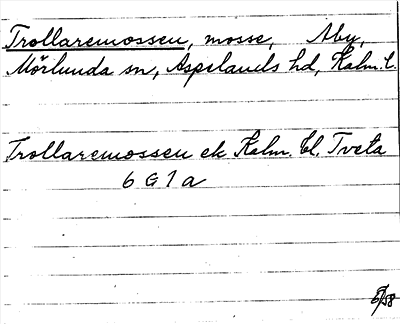 Trollaremossen, mosse, Åby,
Mörlunda sn, Aspelands hd, Kalm. l.
Trollaremossen ek Kalm. bl. Tveta
6 G 1 a